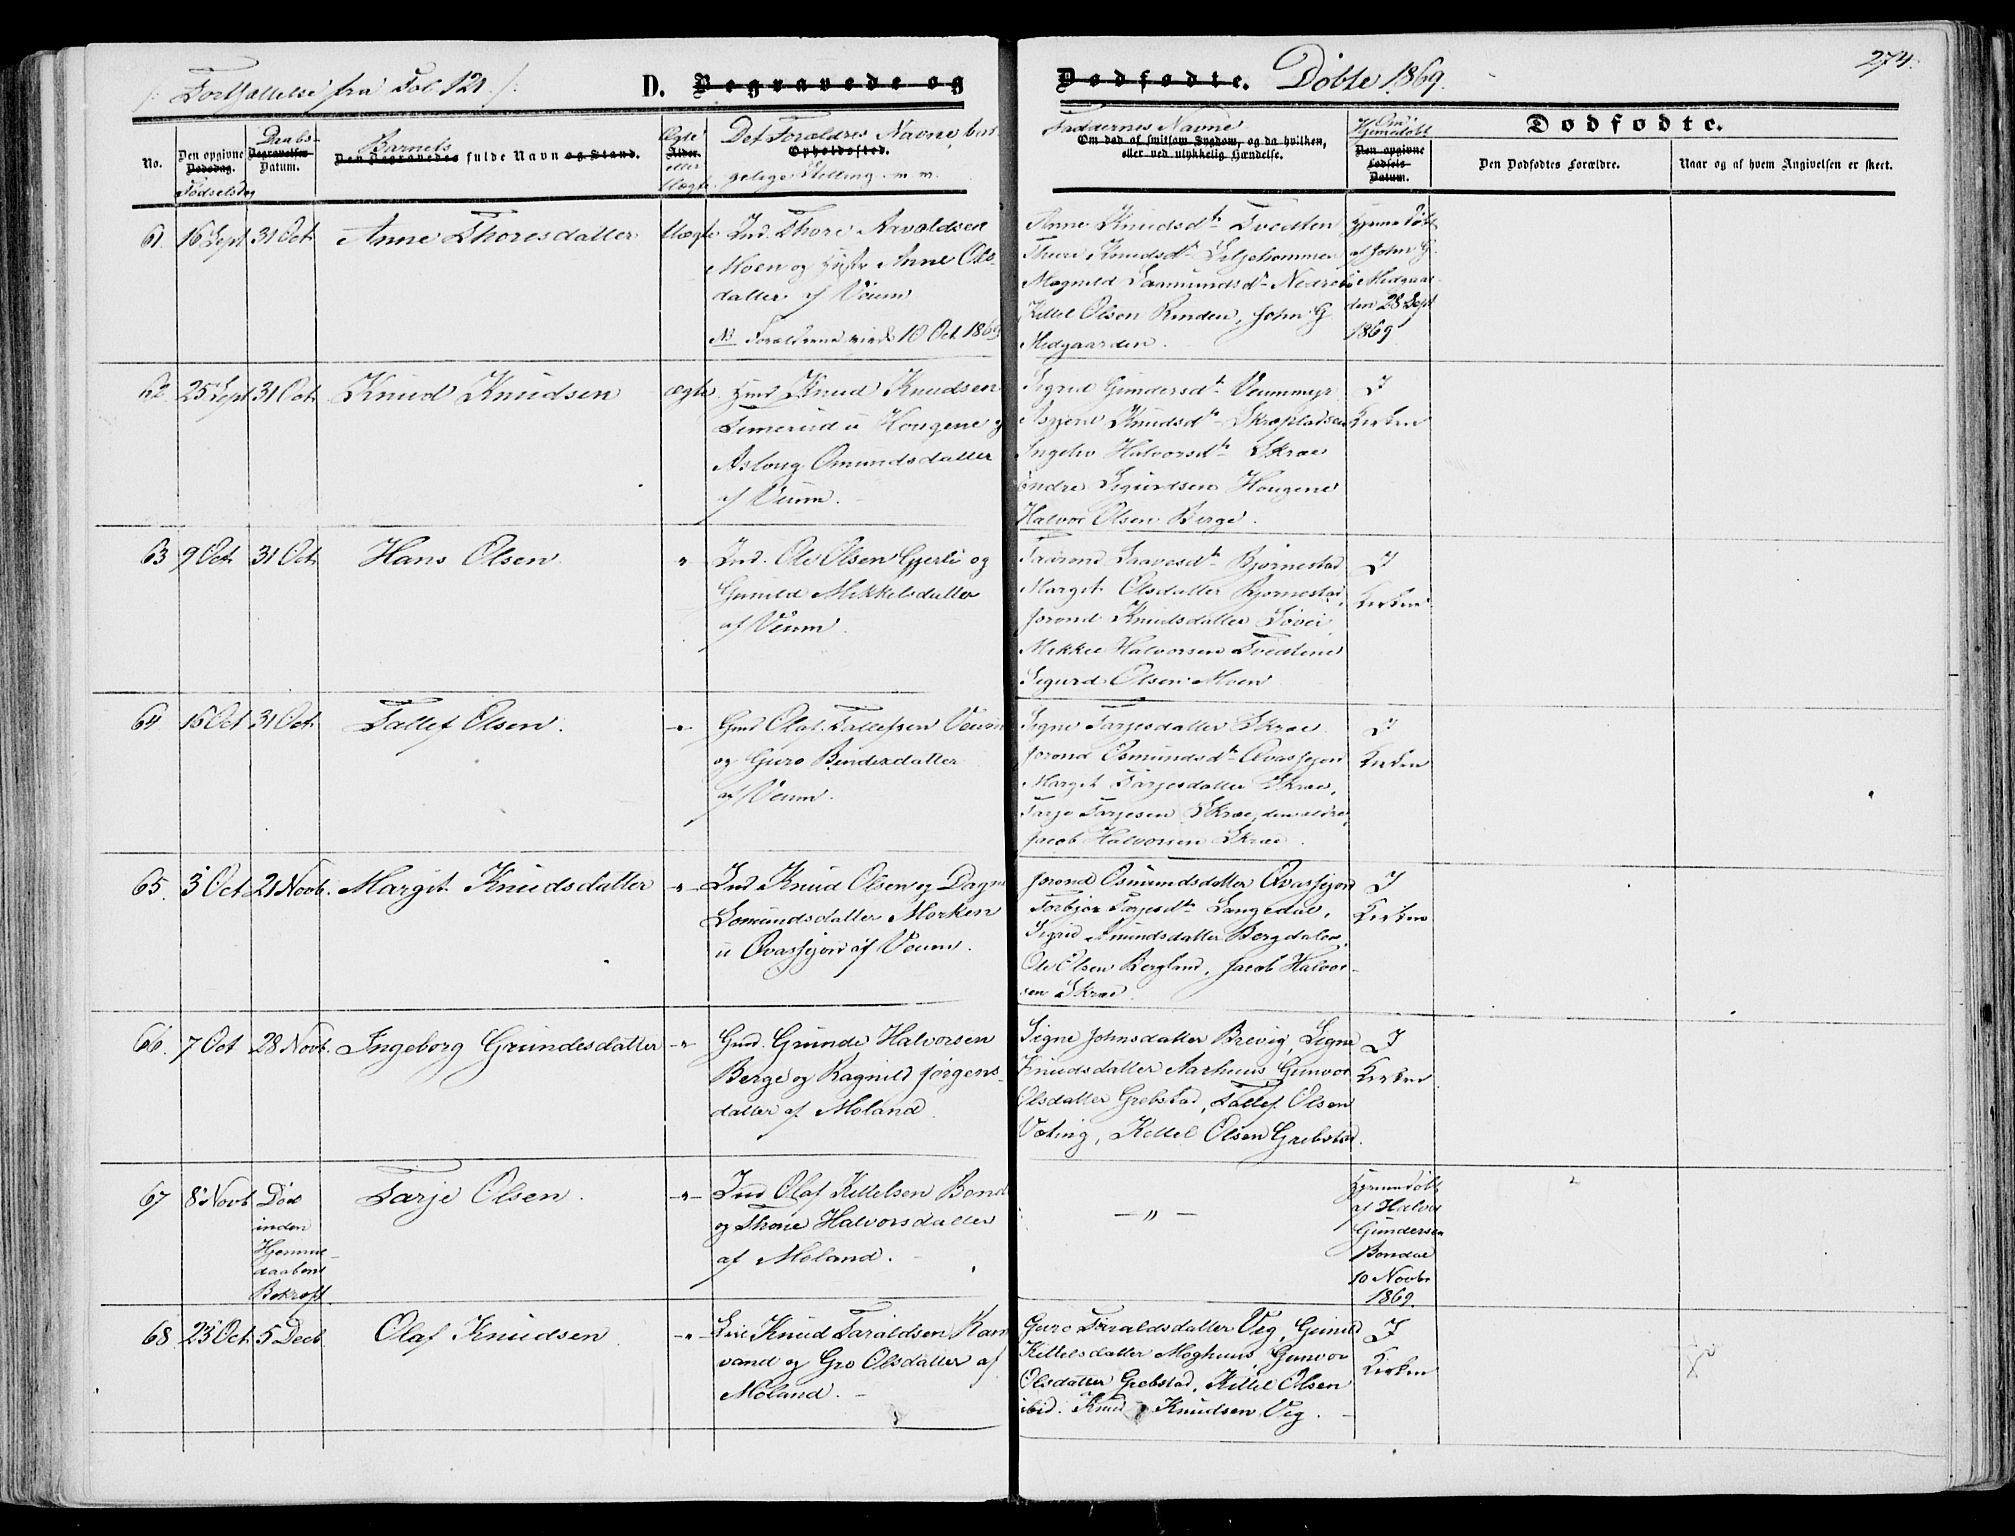 /: Fortsættelse fra Fol. 121 :/
D. Begravede og
Dødfødte. Døbte 1869.
274.
No.
Den opgivne Dødsdag. Fødselsdag
Daabs- Begravelses- Datum.
Barnets
Den Begravedes fulde Navn og Stand.
Ægte Alder. eller Uægte
Det Forældres Navne, bor-
Opholdssted.
gelige Stilling m. m.
Faddernes Navne
Om død af smitsom Sygdom, og da hvilken,
eller ved ulykkelig Hændelse.
Om Hjemmedøbt
Den opgivne Fødsels- Datum.
Dødfødte.
Den Dødfødtes Forældre.
Naar og af hvem Angivelsen er skeet.
61. 16 Sept 31 Oct. Anne Thoresdatter Uægte Ind. Thore Aavaldsen
Moen og Anne Ols-
datter af Veum
NB Forældrene viede 10 Oct. 1869
Anne Knudsdtr Tvedten
Thuri Knudsdtr Liljehommen
Magnild Saamundsdtr Nedrebø
Kittel Olsen Renden, John G
Midgaarden.
Hjemmedøbt
af John G.
Midgaar-
den 28 Sept
1869
62 25 Sept 31 Oct. Knud Knudsen ægte. Hmd Knud Knudsen
Temerud u Hougene og
Asloug Omundsdatter
af Veum.
Sigrid Gundersdtr Veummyr
Asgjerd Knudsdtr Skræpladsen
Ingebor Halvorsdtr Skræe
Condre Sigurdsen Hougene
Halvor Olsen Berge.
I
Kirken
63 9 Oct 31 Oct. Hans Olsen " Ind. Ole Olsen Gjerli og
Gunild Mikkelsdatter
af Veum.
Taarond Saavesdtr Bjørnestad
Margit Olsdatter Bjørnestad,
Jorond Knudsdatter Løvei
Mikkel Halvorsen Tvedtene
Sigurd Olsen Moen
I
Kirken
64 15 Oct 31 Oct. Tallef Olsen. -"- Gmd Olaf Tallefsen Veum
og Guro Bendixdatter
af Veum.
Signe Tarjesdatter Skræe.
Jorond Osmundsdtr Qvassjord
Margit Tarjesdatter Skræe,
Tarje Tarjesen Skræe, den ældre,
Jacob Halvorsen Skræe.
I
Kirken
65. 3 Oct 21 Novb. Margit Knudsdatter -"- Ind Knud Olsen og Dagne
Somundsdatter Morken
u Qvassjord af Veum.
Jorond Osmundsdatter Qvassjord
Torbjør Tarjesdtr Langedal,
Sigrid Knundsdatter Bergdalen,
Ole Olsen Bergland, Jacob Halvor-
sen Skræe.
I
Kirken
66. 7 Oct 28 Novb. Ingeborg Grundesdatter -"- Gmd. Grunde Halvorsen
Berge og Ragnild Jørgens-
datter af Moland.
Signe Johnsdatter Brevig, Signe
Knudsdatter Aarhuus, Gunvor
Olsdatter Grebstad, Tallef Olsen
Veting, Kittel Olsen Grebstad.
I
Kirken
67 8 Novb Død
inden
Hjemme-
daabens
Bekræft.
Tarje Olsen. -"- Ind Olaf Kittelsen Bond
og Thone Halvorsdatter
af Moland.
— " —
Hjemmedøbt
af Halvor
Gundersen
Bondal
10 Novbr
1869.
68 23 Oct. 5 Decb. Olaf Knudsen -"- Knud Taraldsen Ram
vand og Gro Olsdatter af
Moland.
Guro Taraldsdatter Veg, Gunild
Kittelsdatter Moghuus, Gunvor
Olsdatter Grebstad, Kittel Olsen
ibid. Knud Knudsen Veg.
I
Kirken